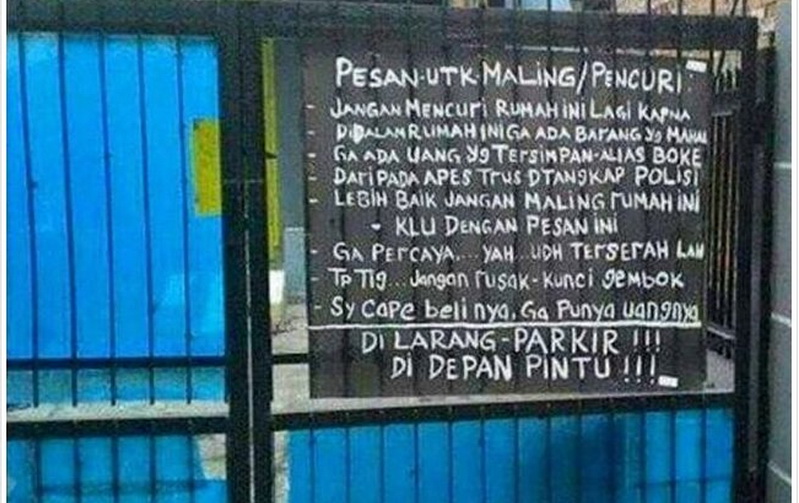 PESAN-UTK-MALING/PENCURI:
- JANGAN MENCURI RUMAH INI LAGI KARNA
- DIDALAN RUMAH INI GA ADA BARANG YG MAHAL
- GA ADA UANG YG TERSIMPAN-ALIAS BOKE
- DARIPADA APES TRUS DTANGKAP POLISI
- LEBIH BAIK JANGAN MALING RUMAH INI
- KLU DENGAN PESAN INI
- GA PERCAYA... YAH.. UDH TERSERAH LAH
- TP Tlg... Jangan rusak-kunci gembok
- Sy Cape beli nya, Ga Punya uangnya
DI LARANG-PARKIR !!!
DI DEPAN PINTU !!!